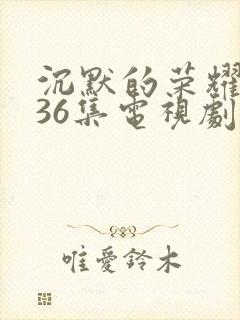 沉默的荣耀
36集電視劇
唯愛鈴木